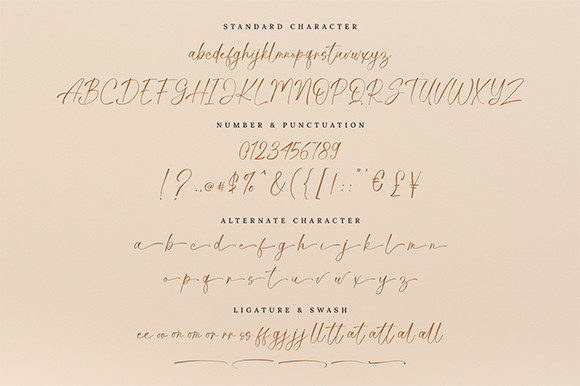 STANDARD CHARACTER
abcdefghijklmnopqrstuvwxyz
ABCDEFGHIJKLMNOPQRSTUVWXYZ
NUMBER & PUNCTUATION
0123456789
!?.,@#$%^&({[|:;"'€£¥
ALTERNATE CHARACTER
a b c d e f g h i j k l m n
o p q r s t u v w x y z
LIGATURE & SWASH
ee oo on om or rr ss ff gg jj ll tt at att al all